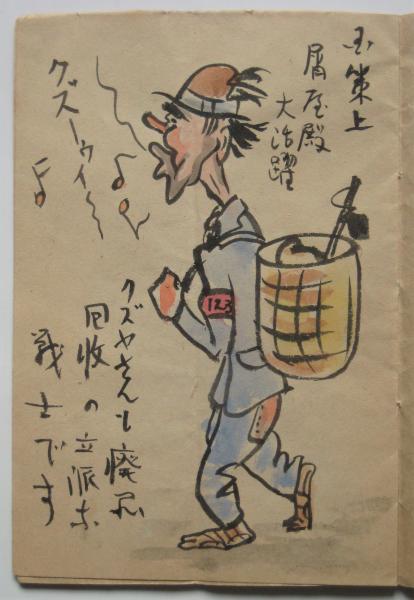 国策上
屑屋殿
大活躍
クズーウィ～
クズヤさんも廃品
回収の立派な
戦士です
123